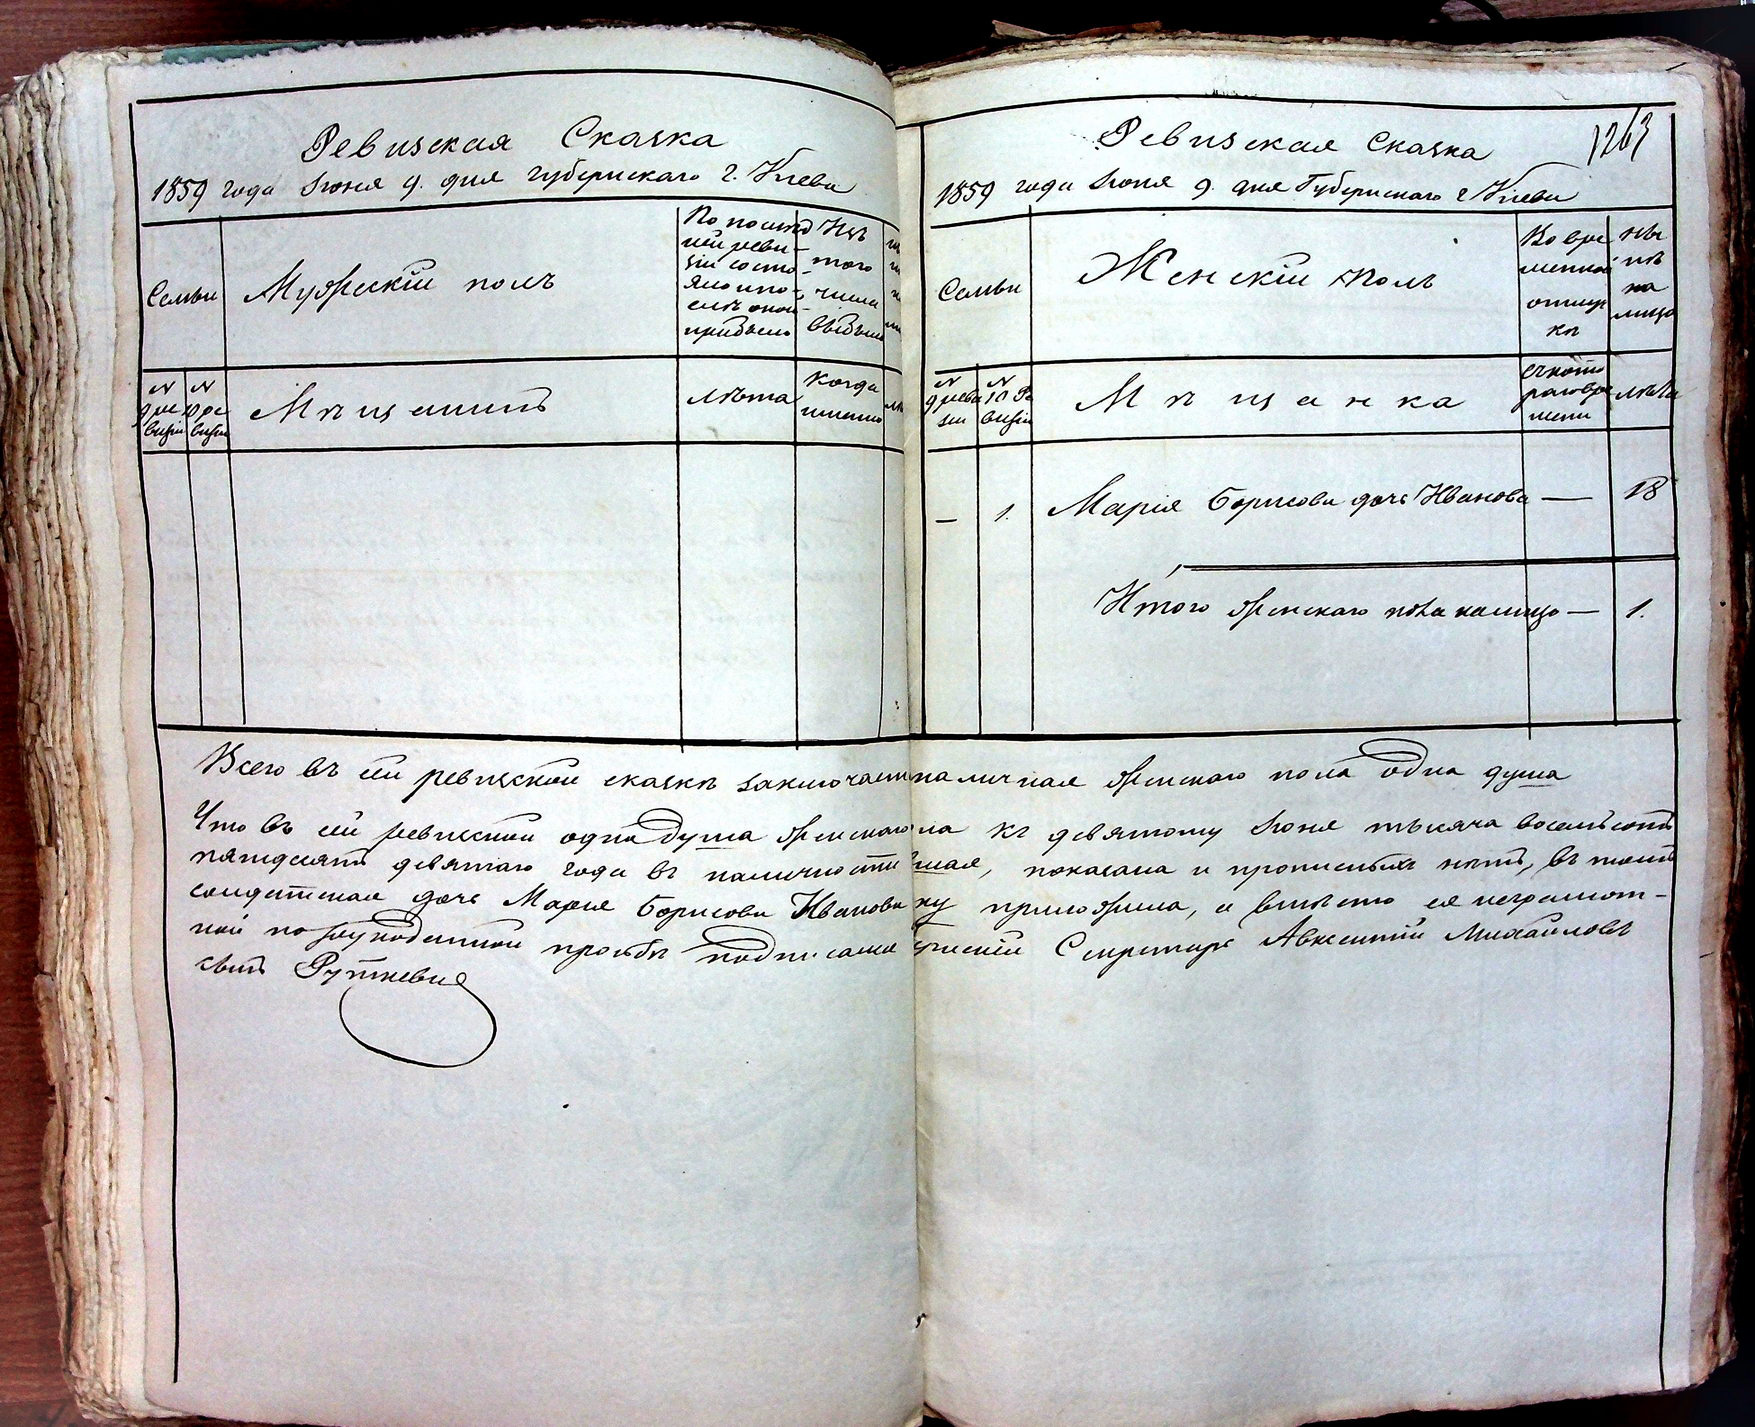 Ревизская Сказка
1859 года Іюня 9. дня губернскаго г. Кіева
Семьи
Мужескій полъ
По послѣд
ней реви-
зіи состо-
яло и по-
слѣ оной
прибыло
Изъ
того
числа
выбыло
N
9 ре
визіи
N
10 ре
визіи
Мѣщанинъ
Лѣта
Когда
именно
1263
Ревизская Сказка
1859 года Іюня 9. дня Губернскаго г Кіева
Семьи
Женскій полъ
Во вре
менной
отлуч
кѣ
Ны
нѣ
на
лицо
N
9 реви
зіи
N
10 Ре
визіи
Мѣщанка
съ кото
раго вре
мени
лѣта
— 1. Марія Борисова дочь Иванова — 18
Итого женскаго пола налицо — 1.
Всего въ сей ревизской сказкѣ заключает наличная женскаго пола одна душа
Что въ сей ревизской одна душа женскаго ла къ девятому Іюня тысяча восемьсотъ
пятдесятъ девятаго года въ наличности шая, показана и прописныхъ нѣтъ, въ томъ
солдатская дочь Марія Борисова Иванова ку приложила, а вмѣсто ея неграмот-
ной по рукоданной просьбѣ подписалъ Секретарь Авксентій Михайловъ
сынъ Руткевич